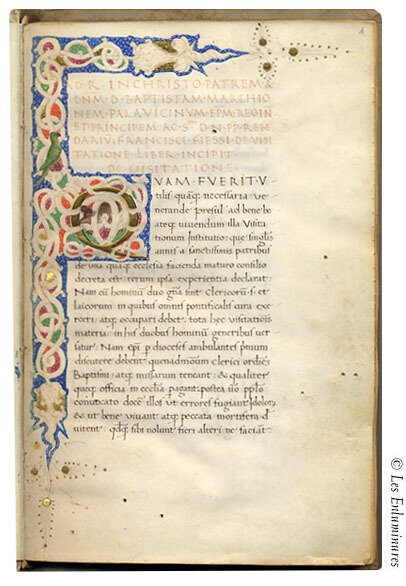 A.D. R. IN CHRISTO PATREM &
DNM. D. BAPTISTAM MARCHIO
NEM. PALAVICINVM EPM REGIN
ET PRINCIPEM AC D.N. PP REFE
DARIV FRANCISCI FIESSI DE VISI
TATIONE LIBER INCIPIT
DE VISITATIONE
QVAM FVERIT V
tilis quāq; necessaria ve
nerande presul ad bene be
ateq; vivendum illa Visita
tionum Institutio: que singulis
annis a sanctissimis patribus
de una quaq; ecclesia facienda maturo consilio
decreta est: rerum ipsa experientia declarat:
Nam cū hominū duo genā sint Clericorum et
laicorum in quibus omnis pontificalis cura exe
rceri atq; occupari debet: tota hec visitatiois
materia in his duobus hominū generibus ver
satur: Nam epī p dioceses ambulantes pmum
discutere debent: quenadmodum clerici ordines
Baptismi: atq; missarum teneant: & qualiter
queq; officia in ecclīa pagant: postea vo pplo
convocato doceāt illos ut errores fugiant idolorum
& ut bene vivant atq; peccata mortifera d
vitent: qdq; sibi nolunt fieri alteri ne faciāt:
1
© Les Enluminures